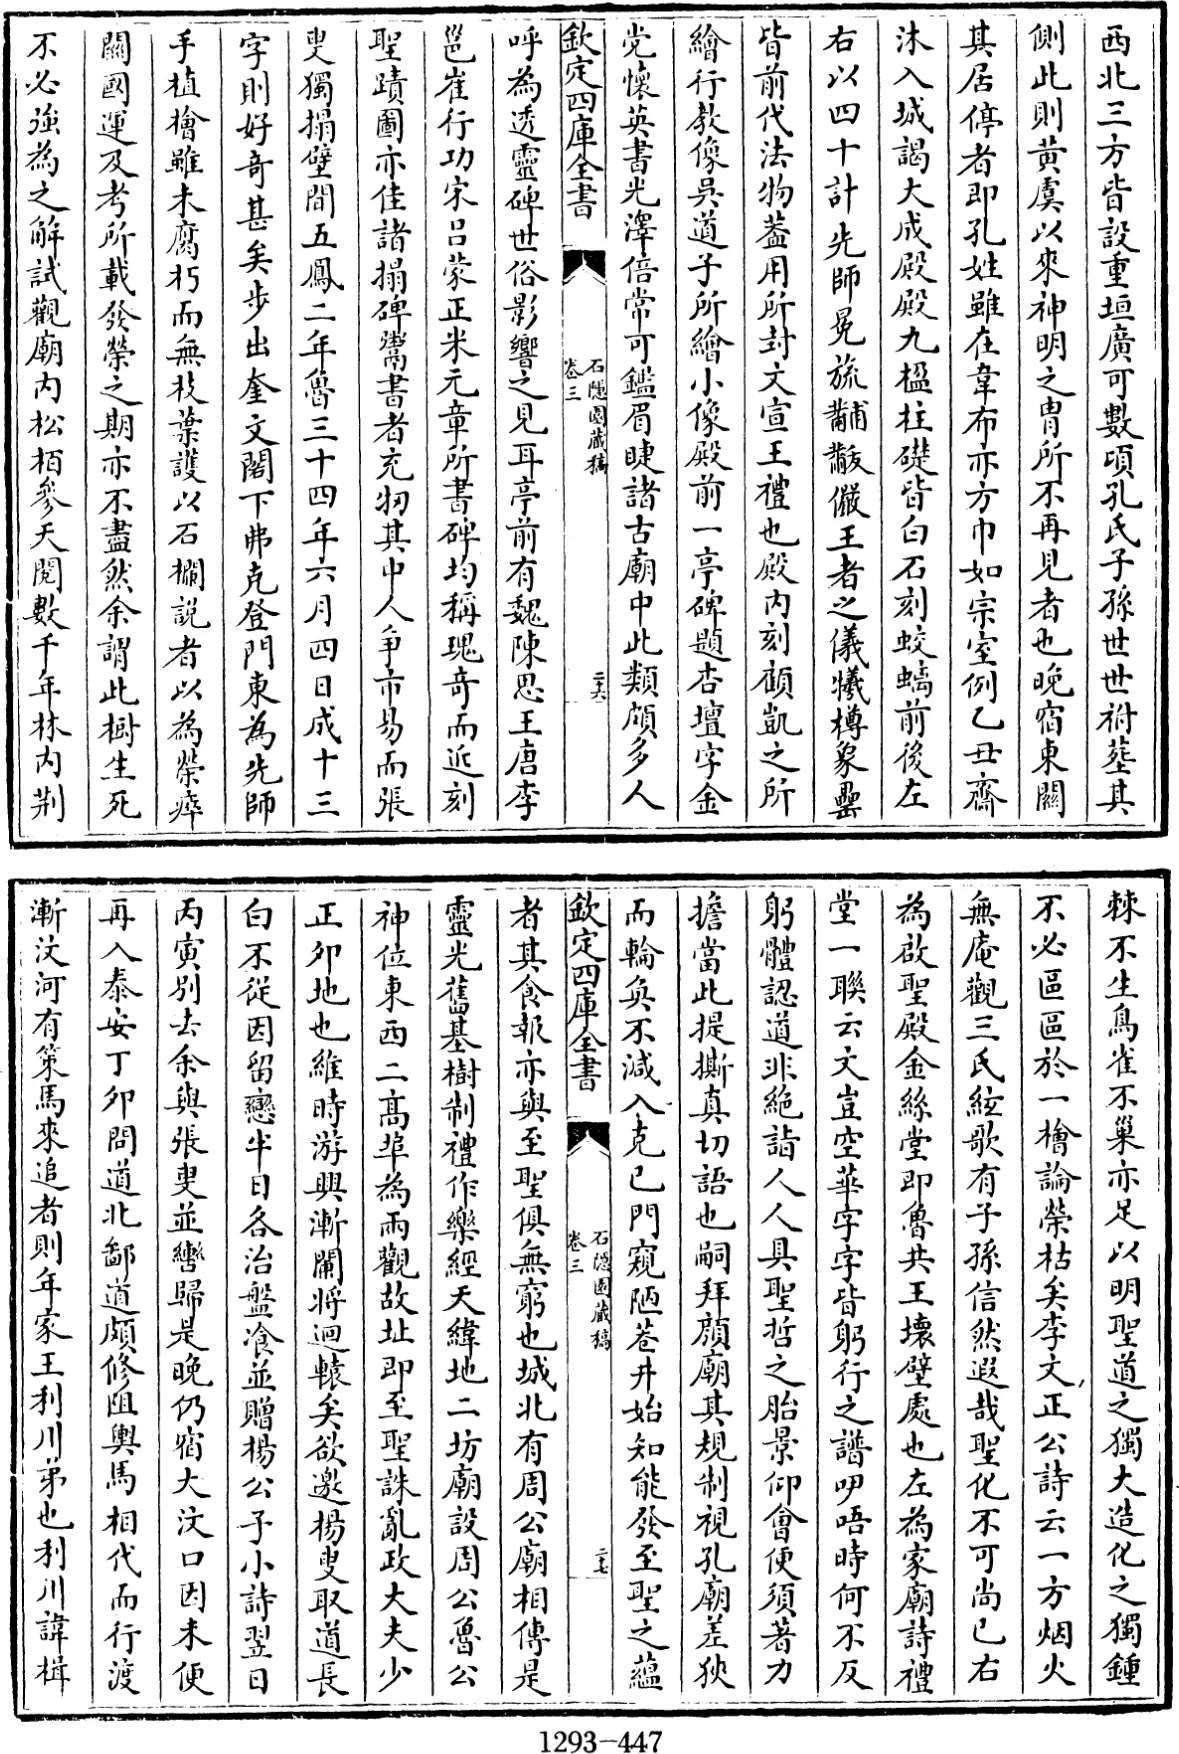 西北三方皆設重垣廣可數頃孔氏子孫世世祔塟其
側此則黄虞以來神明之胄所不再見者也晩宿東關
其居停者即孔姓雖在韋布亦方巾如宗室例乙丑齋
沐入城謁大成殿殿九楹柱礎皆白石刻蛟螭前後左
右以四十計先師冕旒黼黻儼王者之儀犧樽象罍
皆前代法物葢用所封文宣王禮也殿内刻顧凱之所
繪行教像吳道子所繪小像殿前一亭碑題杏壇字金
党懷英書光澤倍常可鑑眉睫諸古廟中此類頗多人
欽定四庫全書
石隱園藏稿
卷三
二十六
呼為透靈碑世俗影響之見耳亭前有魏陳思王唐李
邕崔行功宋吕蒙正米元章所書碑均稱瑰奇而近刻
聖蹟圖亦佳諸搨碑鬻書者充牣其中人爭市易而張
叟獨搨壁間五鳳二年魯三十四年六月四日成十三
字則好奇甚矣步出奎文閣下弗克登門東為先師
手植檜雖未腐朽而無枝葉護以石欄説者以為榮瘁
關國運及考所載發榮之期亦不盡然余謂此樹生死
不必強為之解試觀廟内松栢參天閲數千年林内荆
棘不生鳥雀不巢亦足以明聖道之獨大造化之獨鍾
不必區區於一檜論榮枯矣李文正公詩云一方烟火
無庵觀三氏絃歌有子孫信然遐哉聖化不可尚已右
為啟聖殿金絲堂即魯共王壞壁處也左為家廟詩禮
堂一聯云文豈空華字字皆躬行之譜吚唔時何不反
躬體認道非絶詣人人具聖哲之胎景仰會便須著力
擔當此提撕真切語也嗣拜顔廟其規制視孔廟差狹
而輪奐不減入克己門窺陋巷井始知能發至聖之藴
欽定四庫全書
石隱園藏稿
卷三
二十七
者其食報亦與至聖俱無窮也城北有周公廟相傳是
靈光舊基樹制禮作樂經天緯地二坊廟設周公魯公
神位東西二高埠為兩觀故址即至聖誅亂政大夫少
正夘地也維時游興漸闌將迴轅矣欲邀楊叟取道長
白不從因留戀半日各治盤飡並贈楊公子小詩翌日
丙寅别去余與張叟並轡歸是晩仍宿大汶口因未便
再入泰安丁夘問道北鄙道頗修阻輿馬相代而行渡
漸汶河有策馬來追者則年家王利川弟也利川諱楫
1293-447